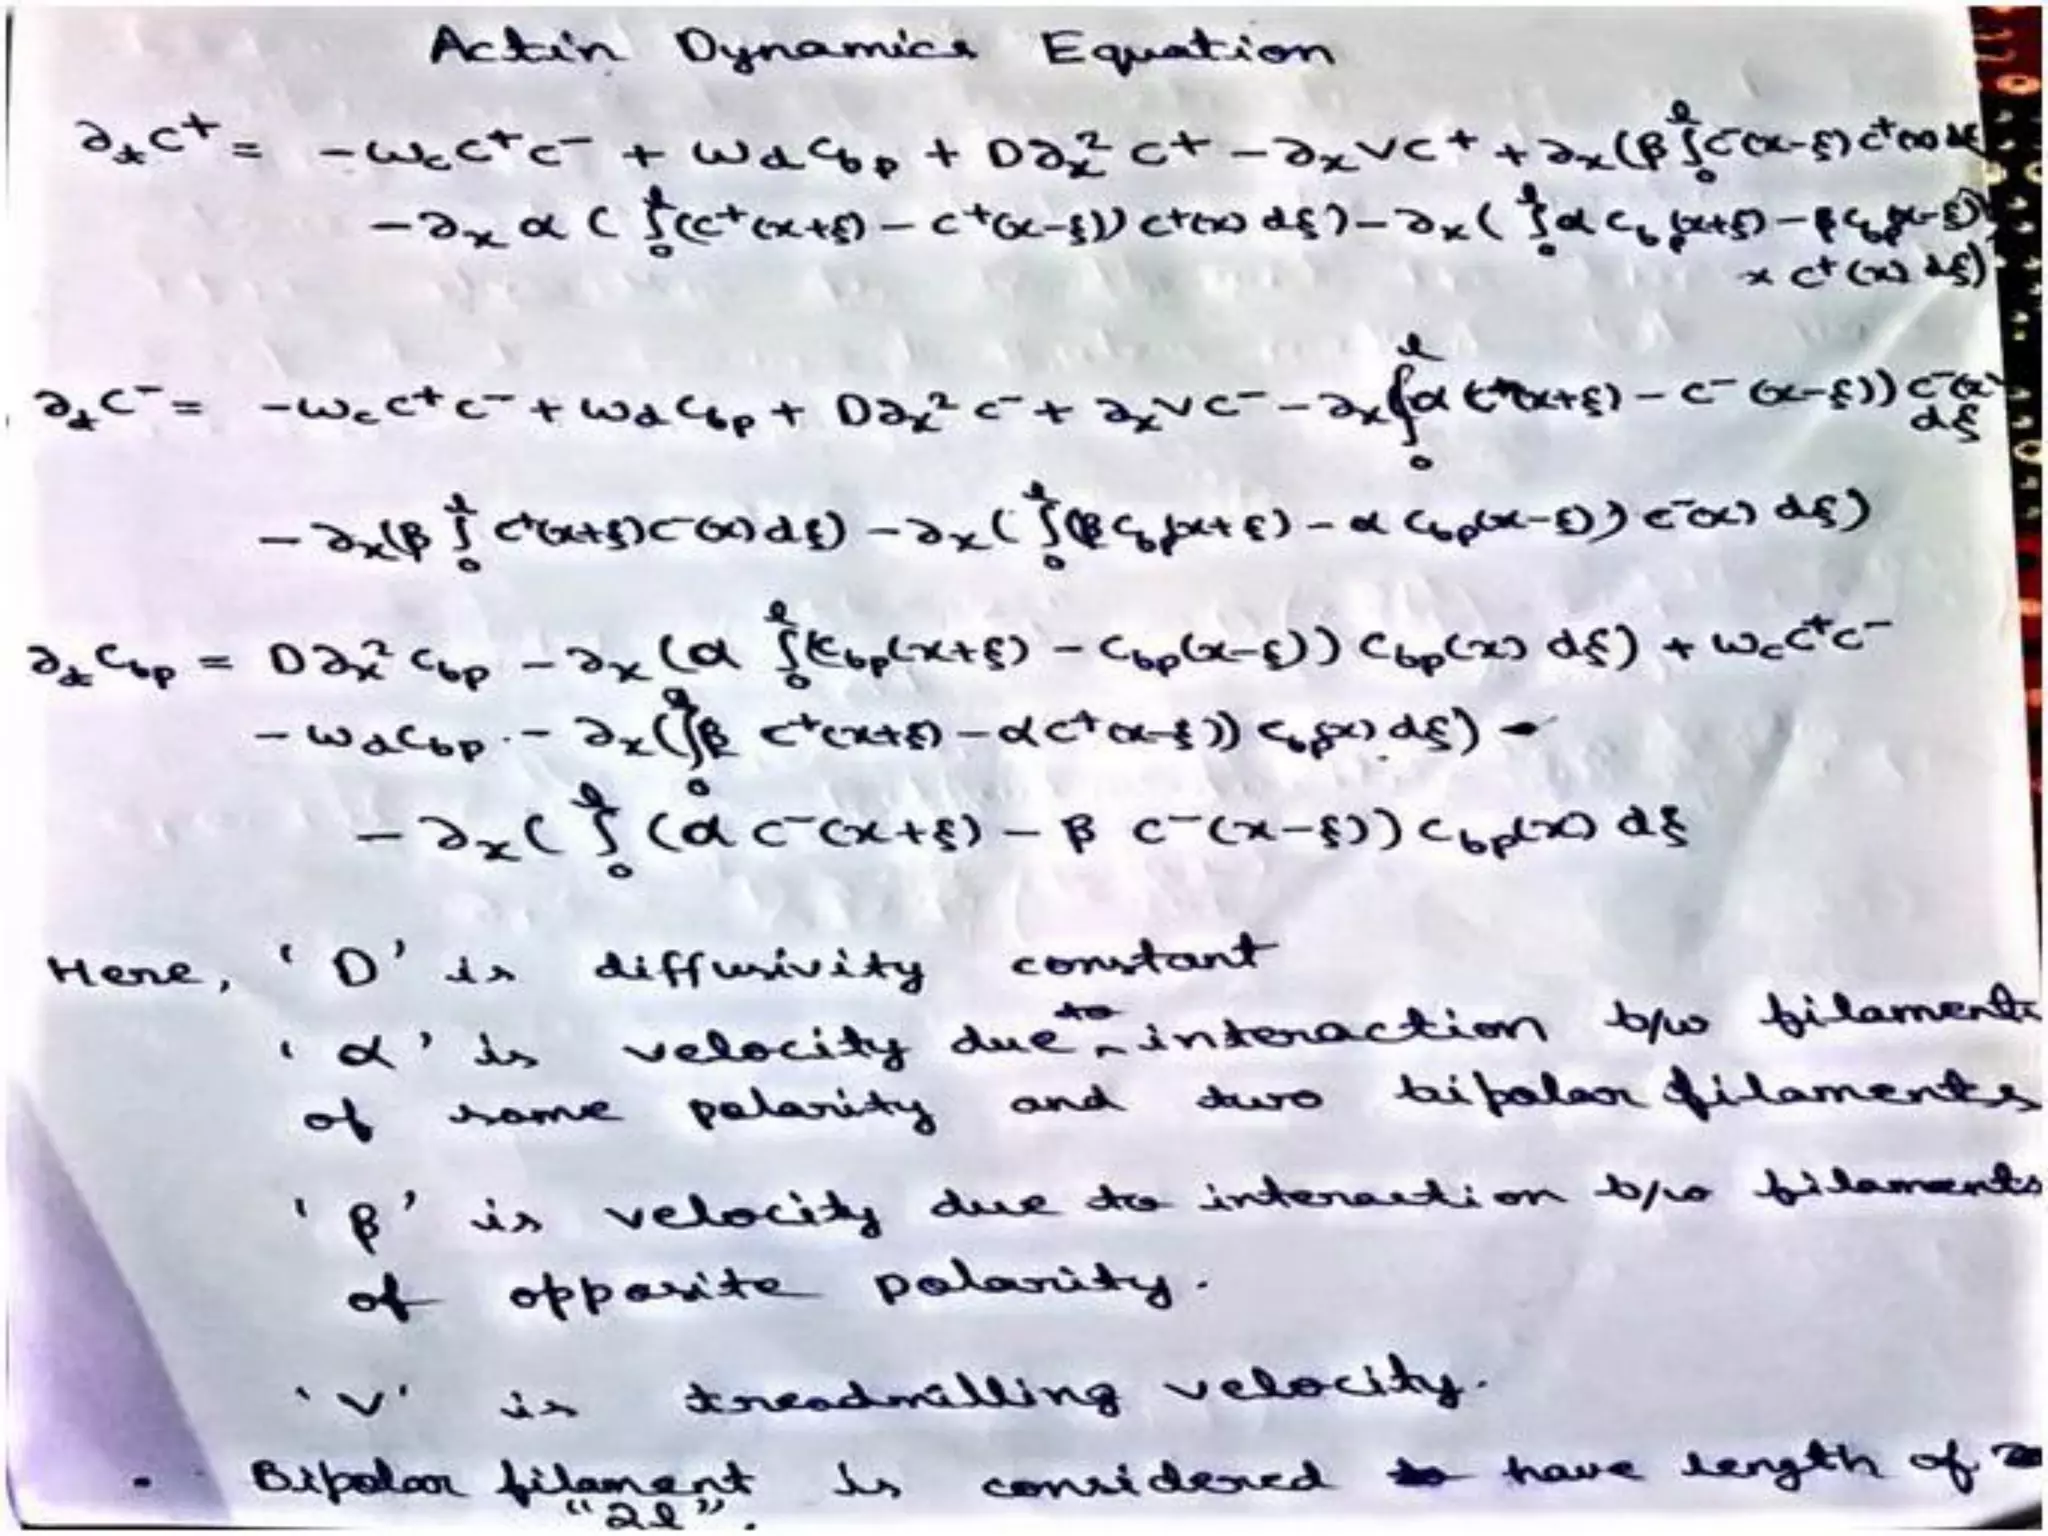 Actin Dynamics Equation
∂ₜC⁺ = -ω_c C⁺C⁻ + ω_d C_bp + D∂ₓ²C⁺ - ∂ₓVC⁺ + ∂ₓ(β∫₀ˡ C⁻(x-ξ)C⁺(x)dξ
-∂ₓ α ( ∫₀ˡ(C⁺(x+ξ) - C⁺(x-ξ)) C⁺(x) dξ) - ∂ₓ( ∫₀ˡ α C_bp(x+ξ) - β C_bp(x-ξ)
× C⁺(x) dξ)
∂ₜC⁻ = -ω_c C⁺C⁻ + ω_d C_bp + D∂ₓ²C⁻ + ∂ₓVC⁻ - ∂ₓ(∫₀ˡ α (C⁻(x+ξ) - C⁻(x-ξ)) C⁻(x)
dξ
- ∂ₓ(β ∫₀ˡ C⁺(x+ξ)C⁻(x)dξ) - ∂ₓ( ∫₀ˡ(β C_bp(x+ξ) - α C_bp(x-ξ)) C⁻(x) dξ)
∂ₜC_bp = D∂ₓ²C_bp - ∂ₓ(α ∫₀ˡ(C_bp(x+ξ) - C_bp(x-ξ)) C_bp(x) dξ) + ω_c C⁺C⁻
- ω_d C_bp - ∂ₓ(∫₀ˡ β C⁺(x+ξ) - αC⁺(x-ξ)) C_bp(x) dξ) -
- ∂ₓ( ∫₀ˡ (α C⁻(x+ξ) - β C⁻(x-ξ)) C_bp(x) dξ
Here, 'D' is diffusivity constant
'α' is velocity due to interaction b/w filaments
of same polarity and two bipolar filaments
'β' is velocity due to interaction b/w filaments
of opposite polarity.
'V' is treadmilling velocity.
• Bipolar filament is considered to have length of
"2l".